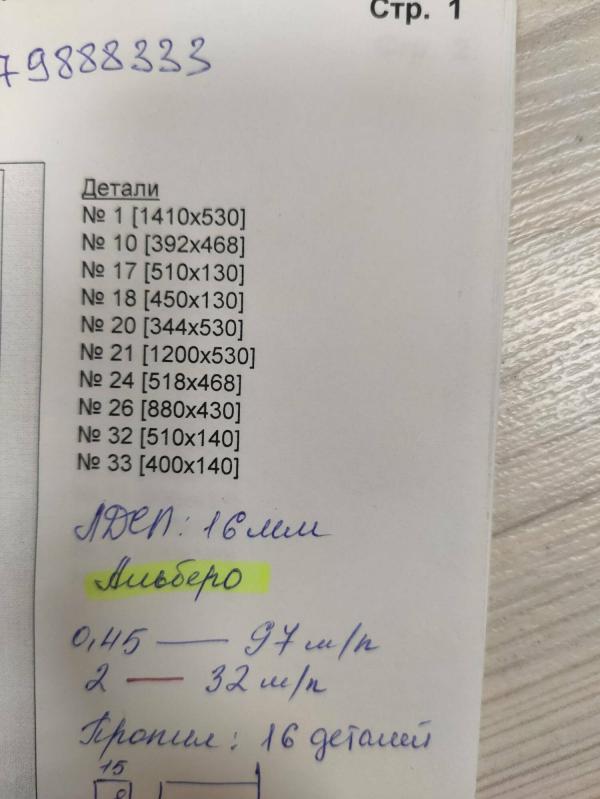 Стр. 1
79888333
Детали
№ 1 [1410x530]
№ 10 [392x468]
№ 17 [510x130]
№ 18 [450x130]
№ 20 [344x530]
№ 21 [1200x530]
№ 24 [518x468]
№ 26 [880x430]
№ 32 [510x140]
№ 33 [400x140]
ЛДСП: 16мм
Альберо
0,45 — 97 м/п
2 — 32 м/п
Пропил: 16 деталей
15
8